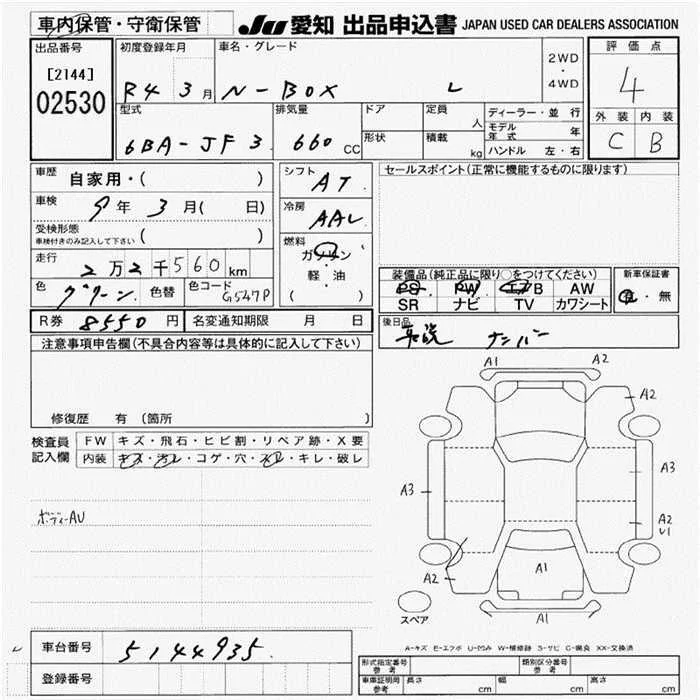 車内保管・守衛保管
JU 愛知 出品申込書 JAPAN USED CAR DEALERS ASSOCIATION
出品番号
[2144]
02530
初度登録年月
R4 3月
車名・グレード
N-BOX L
2WD
・
4WD
評価点
4
外装 内装
C B
型式
6BA-JF3
排気量
660 CC
ドア
形状
定員 人
積載 kg
ディーラー・並行
モデル年式 年
ハンドル 左・右
車歴 自家用・( )
車検 9年 3月( 日)
受検形態
車検付きのみ記入して下さい ( )
走行 2万2千560km
色 グリーン 色替 色コード G547P
R券 8550円 名変通知期限 月 日
シフト AT
冷房 AAC
燃料
ガソリン
・
軽・油
( )
セールスポイント(正常に機能するものに限ります)
装備品(純正品に限り○をつけてください)
PS PW エアB AW
SR ナビ TV カワシート
新車保証書
有・無
後日品
取説 ナンバー
注意事項申告欄(不具合内容等は具体的に記入して下さい)
修復歴 有(箇所 )
検査員記入欄
FW キズ・飛石・ヒビ割・リペア跡・X要
内装 キズ・汚レ・コゲ・穴・スレ・キレ・破レ
ボディーAU
A1 A2
A2
A3
A3
A2
U1
A2
A1
A1
スペア
A-キズ E-エクボ U-凹み W-補修跡 S-サビ C-腐食 XX-交換済
車台番号 5144935
登録番号
形式指定番号 参考
類別区分番号 参考
車庫証明用 参考 長さ cm 幅 cm 高さ cm